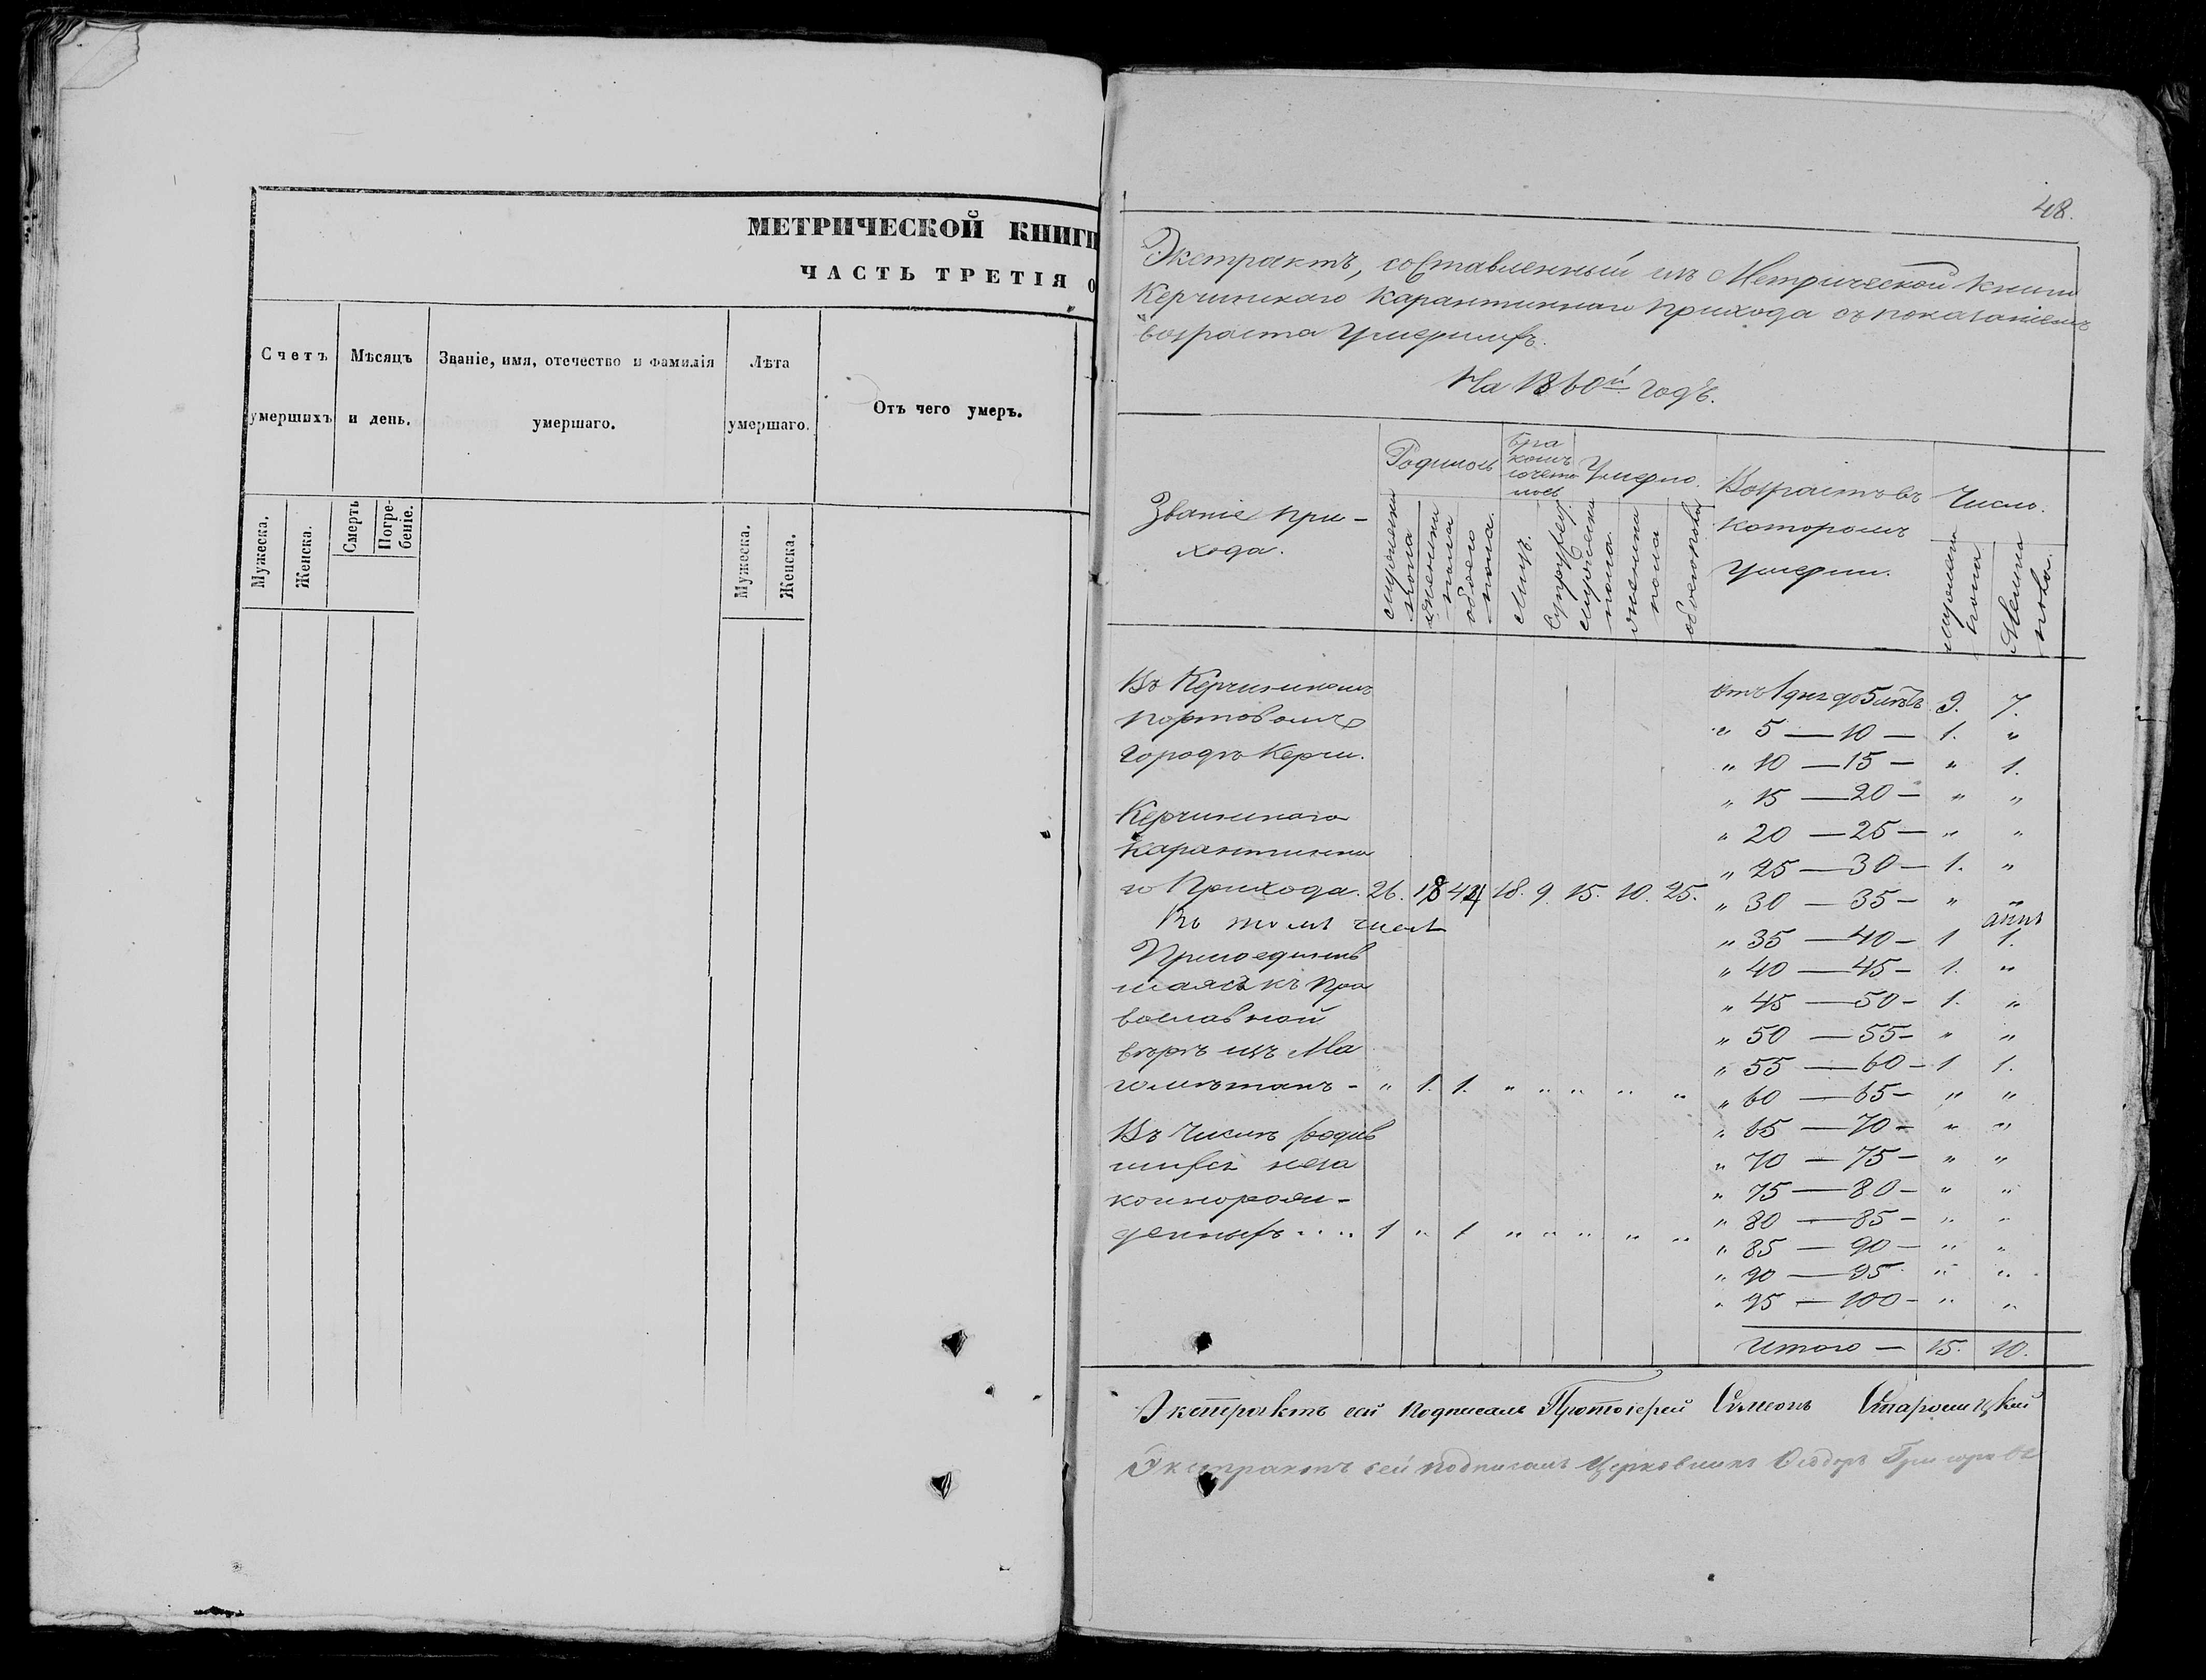 МЕТРИЧЕСКОЙ КНИГИ
ЧАСТЬ ТРЕТІЯ О
Счетъ умершихъ
Мѣсяцъ и день.
Званіе, имя, отечество и фамилія умершаго.
Лѣта умершаго.
Отъ чего умеръ.
Мужеска.
Женска.
Смерть
Погре-
беніе.
Мужеска.
Женска.
48.
Экстрактъ, составленный изъ Метрической книги
Керчинскаго Карантиннаго прихода съ показаніемъ
возраста умершихъ.
На 1860й годъ.
Званіе при-
хода.
Родилось
Бра
комъ
сочета
лось
Умерло.
Возрастъ въ
которомъ
умерли.
Число.
мужеска
пола
женска
пола
обоего
пола.
Лицъ.
Супружес.
мужеска
пола
женска
пола
обоего пола
мужеска
пола
Женска
пола.
Въ Керчинскомъ
портовомъ
городѣ Керчи.
Керчинскаго
Карантинна
го Прихода. 26. 18 44 18. 9. 15. 10. 25.
Въ томъ числѣ
Присоединив
шаяся къ пра
вославной
вѣрѣ изъ Ма
гометанъ - " 1. 1. " " " " "
Въ числѣ родив
шихся неза
коннорож-
денныхъ .... 1 " 1 " " " " "
отъ 1 дня до 5 лѣтъ 9. 7.
" 5 — 10 — 1. "
" 10 — 15 — " 1.
" 15 — 20 — " "
" 20 — 25 — " "
" 25 — 30 — 1. "
" 30 — 35 — " "
" 35 — 40 — 1 1.
" 40 — 45 — 1. "
" 45 — 50 — 1. "
" 50 — 55 — " "
" 55 — 60 — 1 1.
" 60 — 65 — " "
" 65 — 70 — " "
" 70 — 75 — " "
" 75 — 80 — " "
" 80 — 85 — " "
" 85 — 90 — " "
" 90 — 95 " "
" 95 — 100 — " "
Итого — 15. 10.
Экстрактъ сей подписалъ Протоіерей Симонъ
Экстрактъ сей подписалъ Церковникъ Ѳеодоръ Григорьевъ